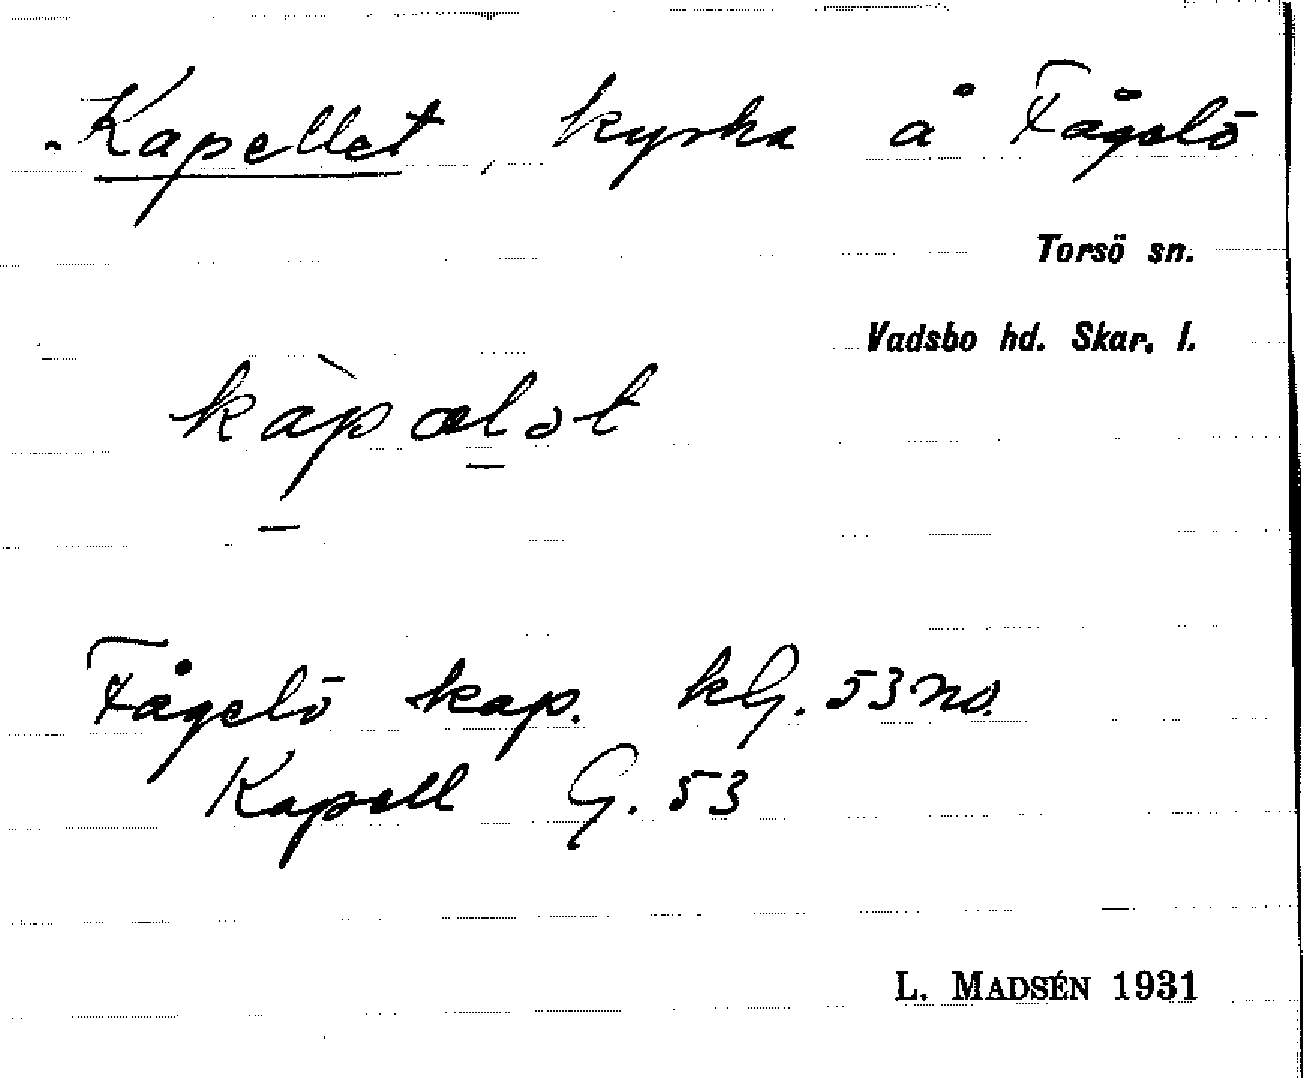 Kapellet, kyrka å Fågelö
Torsö sn.
Vadsbo hd. Skar. l.
kàpælət
Fågelö kap. kG. 53 no.
Kapell G. 53
L. MADSÉN 1931